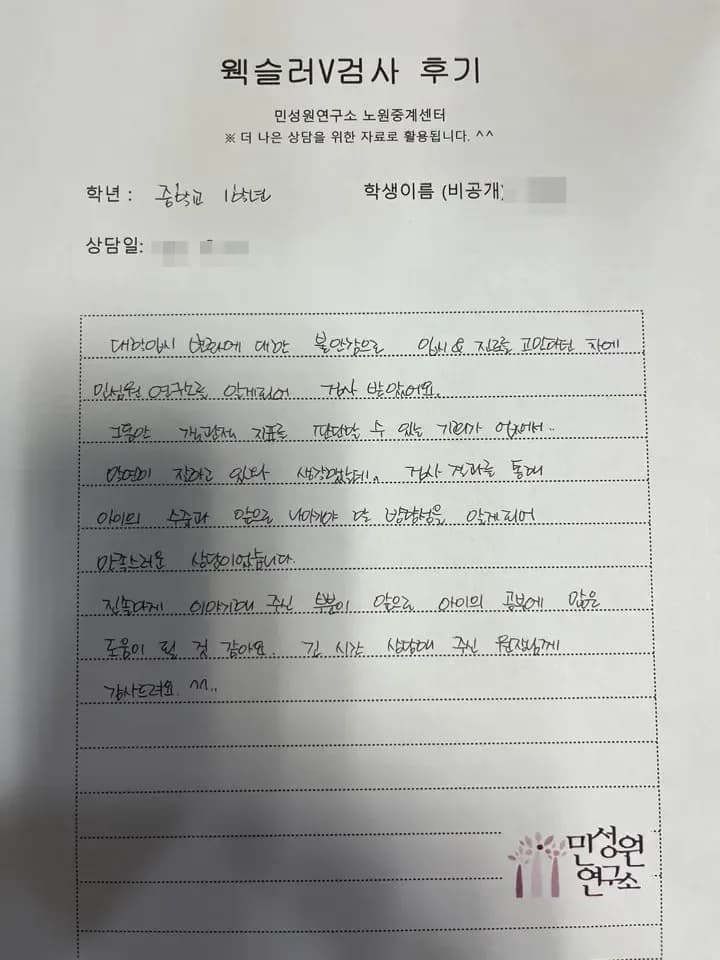 웩슬러V검사 후기
민성원연구소 노원중계센터
※ 더 나은 상담을 위한 자료로 활용됩니다. ^^
학년 : 중학교 1학년 학생이름 (비공개)
상담일:
대학입시 변화에 대한 불안감으로 입시 & 진로를 고민하던 차에
민성원 연구소를 알게되어 검사 받았어요.
그동안 객관적 지표로 판단할 수 있는 기회가 없어서..
막연히 잘하고 있다 생각했는데.. 검사 결과를 통해
아이의 수준과 앞으로 나아가야 할 방향성을 알게되어
만족스러운 상담이었습니다.
진솔하게 이야기해 주신 부분이 앞으로 아이의 공부에 많은
도움이 될 것 같아요. 긴 시간 상담해 주신 원장님께
감사드려요. ^^..
민성원
연구소